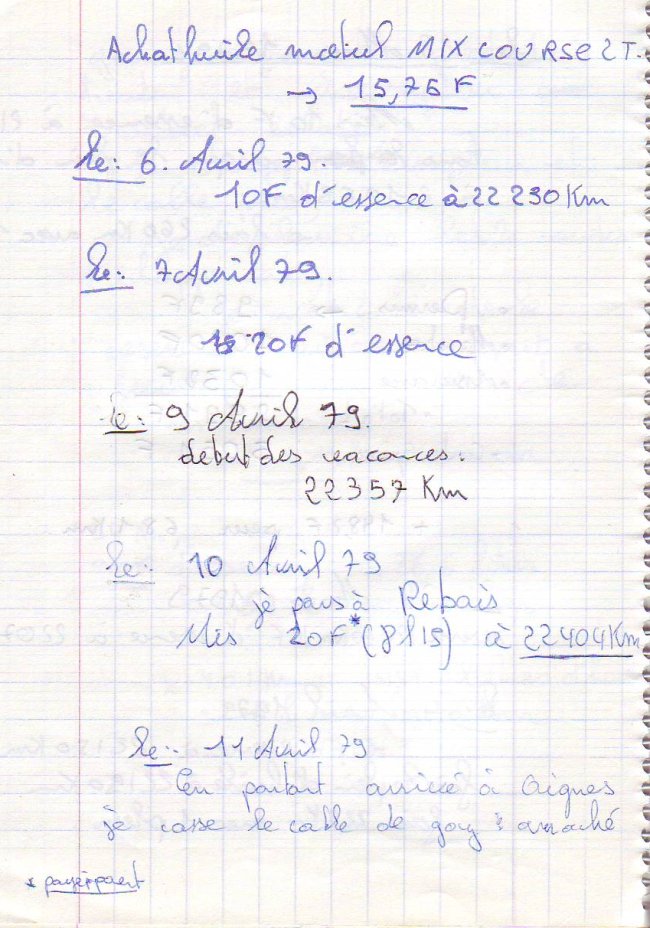 Achat huile motul MIX COURSE 2T.
→ 15,76 F
Le: 6. Avril 79.
10F d'essence à 22 230 Km
Le: 7 Avril 79.
20F d'essence
Le: 9 Avril 79.
debut des vacances.
22357 Km
Le: 10 Avril 79
je pars à Rebais
Mis 20F* (8l15) à 22404Km
Le: 11 Avril 79
En partant arrivé à Aignes
je casse le cable de gaz : arraché
*